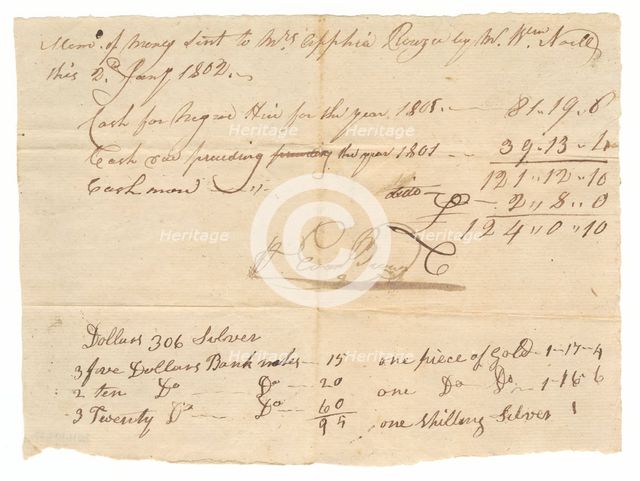 Mem. of Money Sent to Mrs Apphia Rouze by Mr. Wm Noell
this 2d Jany 1802
Cash for Negroe Hire for the year 1801 81 .. 19 .. 6
Cash for preceeding the year 1801 39 .. 13 .. 4
121 .. 12 .. 10
Cash more dido 2 .. 8 .. 0
124 .. 0 .. 10
Dollars 306 Solver
3 five Dollars Bank notes 15 one piece of Gold 1 - 17 - 4
2 ten Do Do 20 one Do Do 1 - 16 - 6
3 Twenty Do Do 60 one Shilling Silver 1
95
Heritage